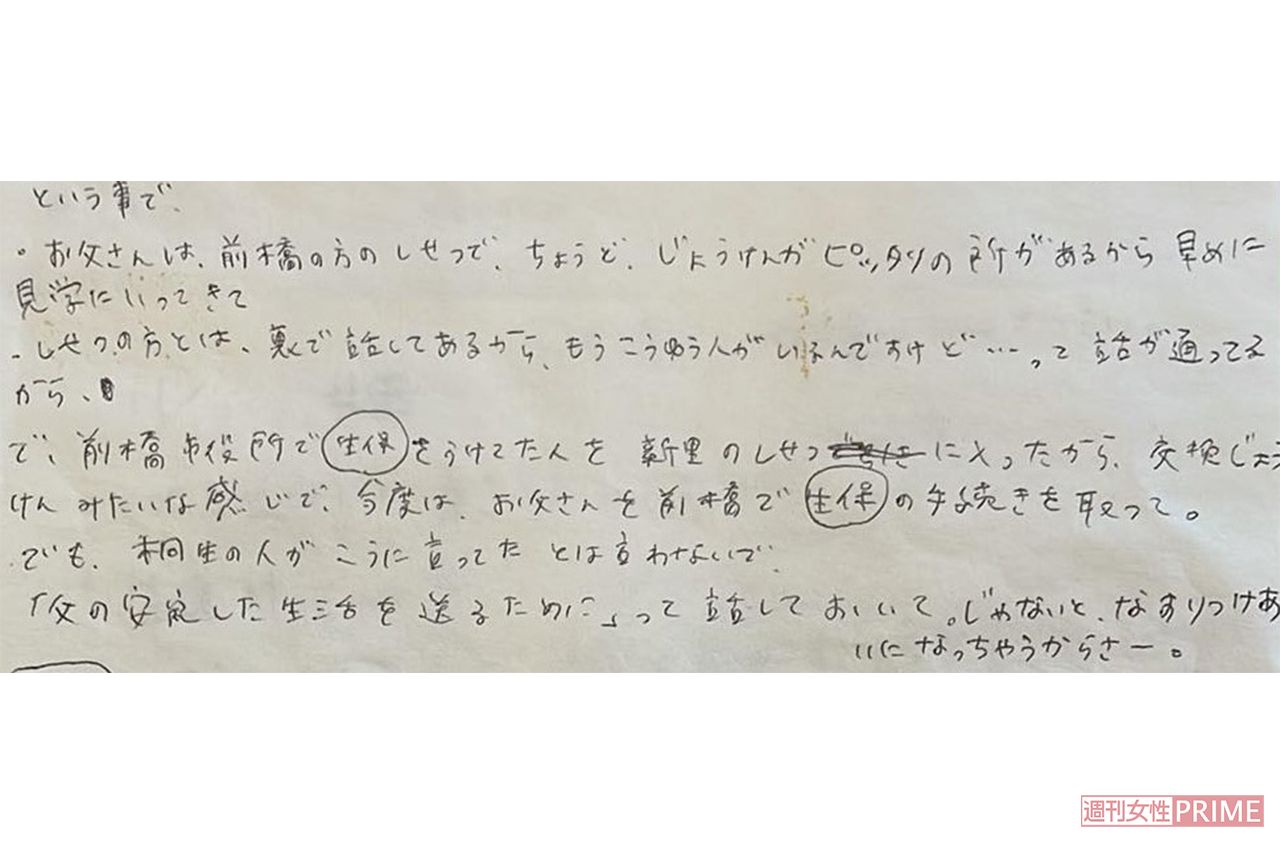 という事で、
・お父さんは、前橋の方のしせつで、ちょうど、じょうけんがピッタリの所があるから早めに
見学にいってきて
・しせつの方とは、裏で話してあるから、もうこうゆう人がいるんですけど…って話が通ってる
から、
で、前橋市役所で生保をうけてた人を新里のしせつに入ったから、交換じょう
けんみたいな感じで、今度は、お父さんを前橋で生保の手続きを取って。
でも、桐生の人がこうに言ってたとは言わないで、
「父の安定した生活を送るために」って話しておいて。じゃないと、なすりつけあ
いになっちゃうからさー。
週刊女性PRIME